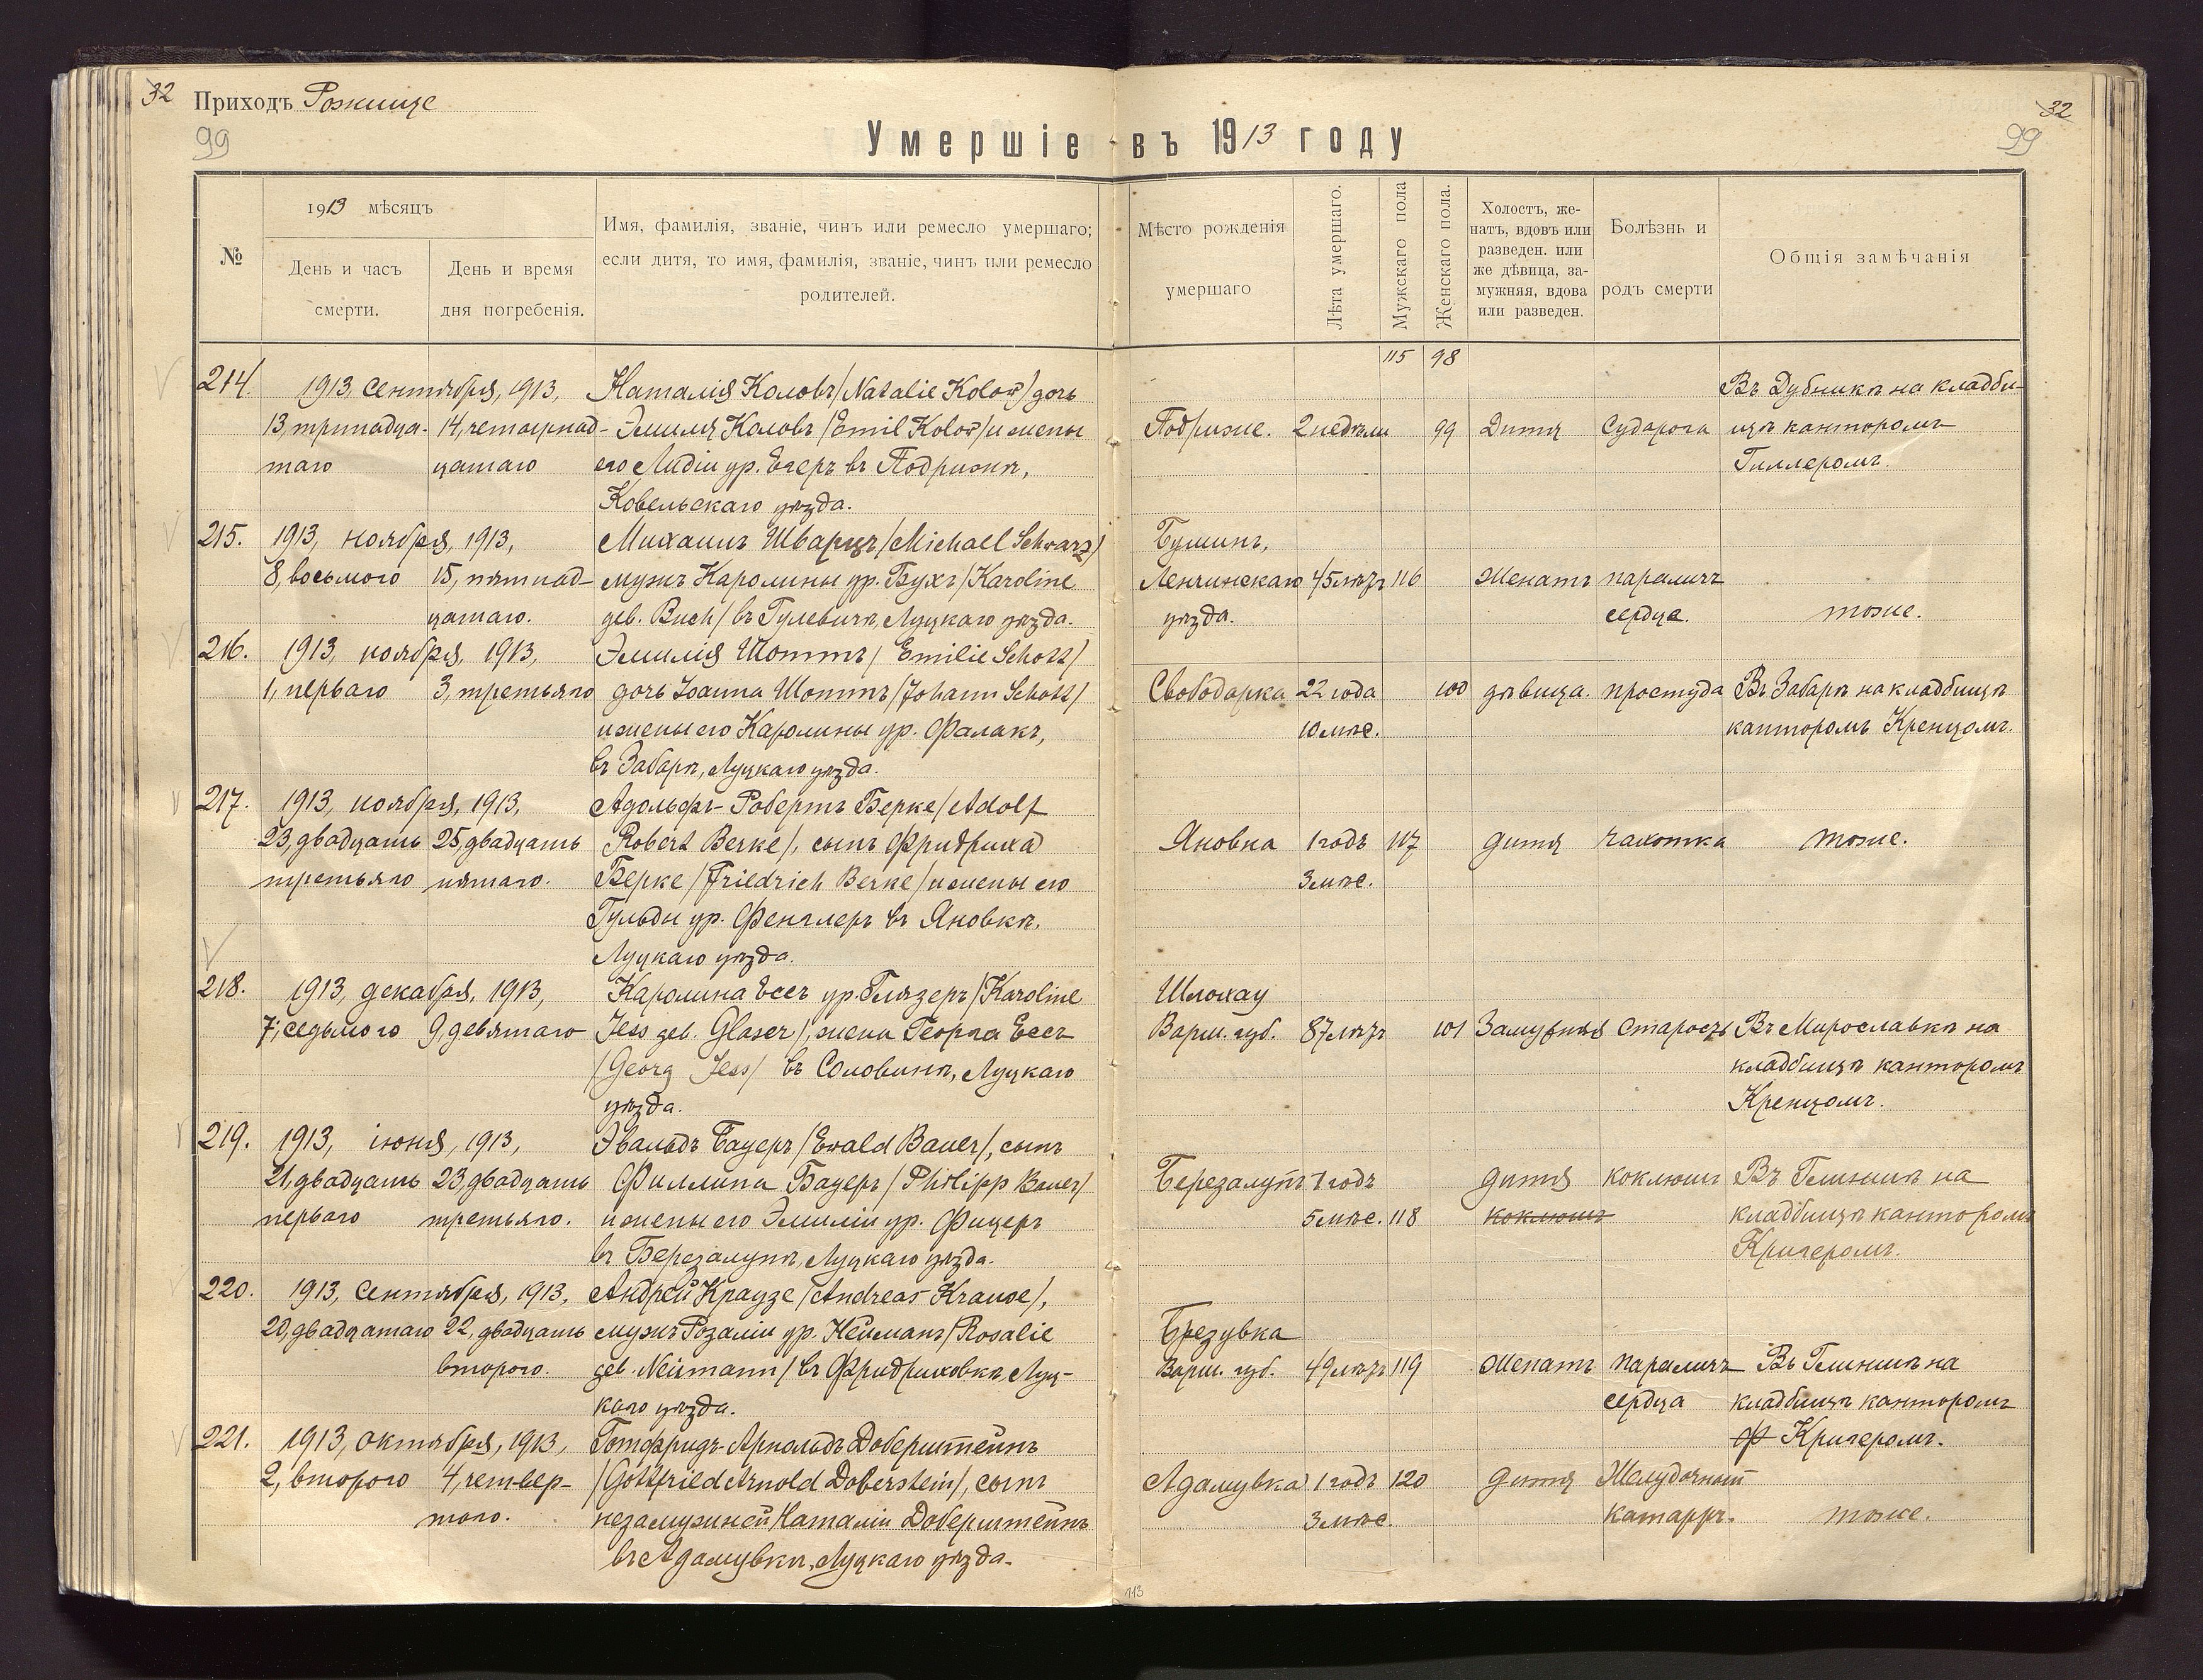 32 Приходъ Рожище
99
32
99
Умершіе въ 1913 году
№
1913 мѣсяцъ
День и часъ
смерти.
День и время
дня погребенія.
Имя, фамилія, званіе, чинъ или ремесло умершаго;
если дитя, то имя, фамилія, званіе, чинъ или ремесло
родителей.
Мѣсто рожденія
умершаго
Лѣта умершаго.
Мужскаго пола
Женскаго пола.
Холостъ, же-
натъ, вдовъ или
разведен. или
же дѣвица, за-
мужняя, вдова
или разведен.
Болѣзнь и
родъ смерти
Общія замѣчанія
115 98
214. 1913, сентября, 1913, Наталія Коловъ/Natalie Kolow/дочь Въ Дубникѣ на кладби-
13, тринадца- 14, четырнад- Эмиля Коловъ/Emil Kolow/и жены Подриже. 2 недѣли 99 Дитя Судорога щѣ канторомъ
таго цатаго его Лидіи ур. Егеръ въ Подрижѣ, Гиллеромъ.
Ковельскаго уѣзда.
215. 1913, ноября, 1913, Михаилъ Шварцъ/Michael Schwarz/
8, восьмого 15, пятнад- мужъ Каролины ур. Бухъ/Karoline 45 лѣтъ 116 Женатъ параличъ
цатаго. geb. Buch/ въ Гулевичѣ, Луцкаго уѣзда. уѣзда. сердца. тоже.
216. 1913, ноября, 1913, Эмилія Шоттъ/Emilie Schott/
1, перваго 3, третьяго дочь Іоанна Шоттъ/Johann Schott/ Свободарка 22 года 100 дѣвица. простуда Въ Забарѣ на кладбищѣ
и жены его Каролины ур. Фалакъ, 10 мѣс. канторомъ Кренцомъ.
въ Забарѣ, Луцкаго уѣзда.
217. 1913, ноября, 1913, Адольфъ-Робертъ Берке/Adolf
23, двадцать 25, двадцать Robert Berke/, сынъ Фридриха Яновка 1 годъ 117 дитя чахотка тоже.
третьяго пятаго. Берке/Friedrich Berke/и жены его 3 мѣс.
Гульды ур. Фенглеръ въ Яновкѣ,
Луцкаго уѣзда.
218. 1913, декабря, 1913, Каролина Ессъ ур. Глязеръ/Karoline
7, седьмого 9, девятаго Jess geb. Glaser/, жена Георга Ессъ Варш. губ. 87 лѣтъ 101 Замужняя старость Въ Мирославкѣ на
/Georg Jess/ въ Соловинѣ, Луцкаго кладбищѣ канторомъ
уѣзда. Кренцомъ.
219. 1913, іюня, 1913, Эвальдъ Бауеръ/Ewald Bauer/, сынъ
21, двадцать 23, двадцать Филлипа Бауеръ/Philipp Bauer/ Березалупъ 1 годъ дитя коклюшъ Въ Глинищѣ на
перваго третьяго. и жены его Эмиліи ур. Фицеръ 5 мѣс. 118 коклюшъ кладбищѣ канторомъ
въ Березалупѣ, Луцкаго уѣзда. Кригеромъ.
220. 1913, сентября, 1913, Андрей Краузе/Andreas Krause/,
20, двадцатаго 22, двадцать мужъ Розаліи ур. Нейманъ/Rosalie Брезувка
второго. geb. Neumann/ въ Фридриховкѣ, Луц- Варш. губ. 49 лѣтъ 119 Женатъ параличъ Въ Глинищѣ на
каго уѣзда. сердца кладбищѣ канторомъ
221. 1913, октября, 1913, Готфридъ-Арнольдъ Доберштейнъ Кригеромъ.
2, второго 4, четвер- /Gottfried Arnold Doberstein/, сынъ Адамувка 1 годъ 120 дитя Желудочный
таго. незамужней Наталіи Доберштейнъ 3 мѣс. катарръ. тоже.
въ Адамувкѣ, Луцкаго уѣзда.
113